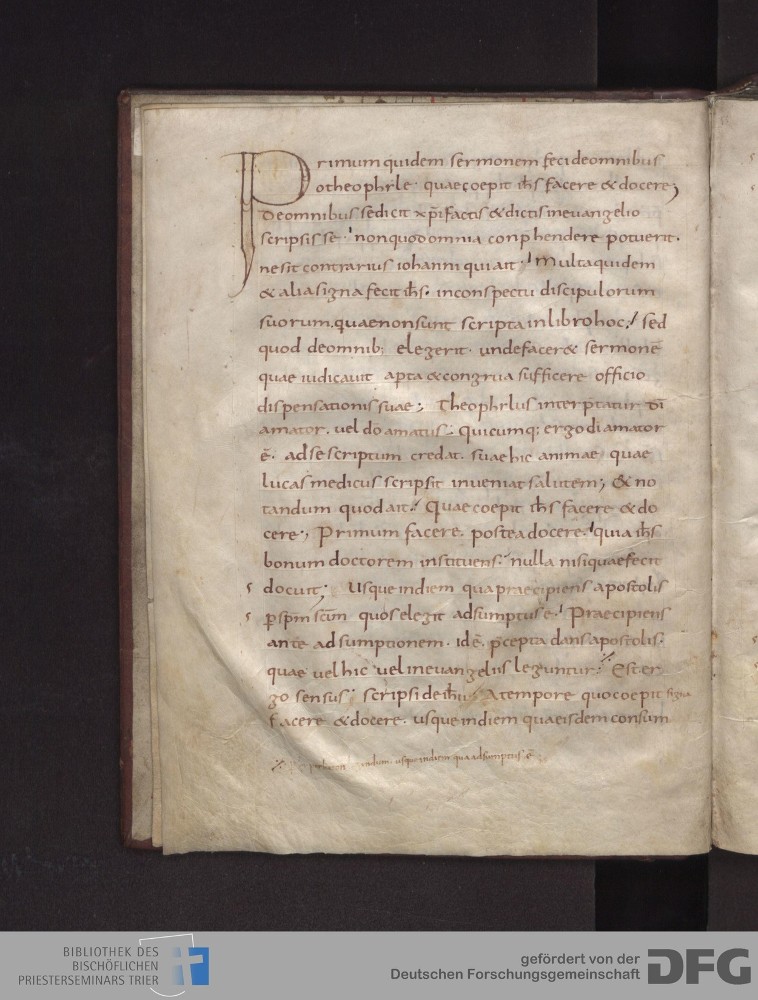 Primum quidem sermonem feci deomnibus
otheophrle· quaecoepit ih̄s facere &docere;
Deomnibus sedicit xp̄i factis &dictis inevangelio
scripsisse· nonquodomnia conp̄hendere potuerit·
nesit contrarius iohanni quiait· Multaquidem
&aliasigna fecit ih̄s· inconspectu discipulorum
suorum, quaenonsunt scripta inlibrohoc; sed
quod deomnib; elegerit· undefacer& sermonē
quae iudicavit apta &congrua sufficere officio
dispensationis suae; Theophrlus interp̄tatur dī
amator· vel dō amatus· Quicumq; ergo di amator
ē· adsescriptum credat· suaehic animae quae
lucas medicus scripsit inveniat salutem; &no
tandum quod ait· Quaecoepit ih̄s facere &do
cere; Primum facere· postea docere· quia ih̄s
bonum doctorem instituens· nulla nisi quae fecit
docuit; Usque indiem qua praecipiens apostolis
p̄ sp̄m sc̄m quos elegit adsumptus ē· Praecipiens
ante adsumptionem· id ē· p̄cepta dans apostolis·
quae vel hic vel inevangeliis leguntur· Ester
go sensus· scripsi deih̄u· Atempore quocoepit signa
facere &docere· usque indiem quaeisdem consum
usque indiem qua adsumptus ē
BIBLIOTHEK DES
BISCHÖFLICHEN
PRIESTERSEMINARS TRIER
gefördert von der
Deutschen Forschungsgemeinschaft
DFG